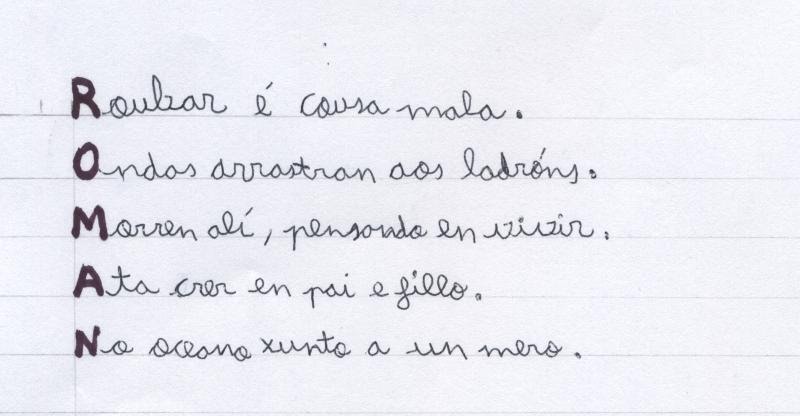 Roubar é cousa mala.
Ondas arrastran aos ladróns.
Morren alí, pensando en vivir.
Ata crer en pai e fillo.
No oceano xunto a un mero.